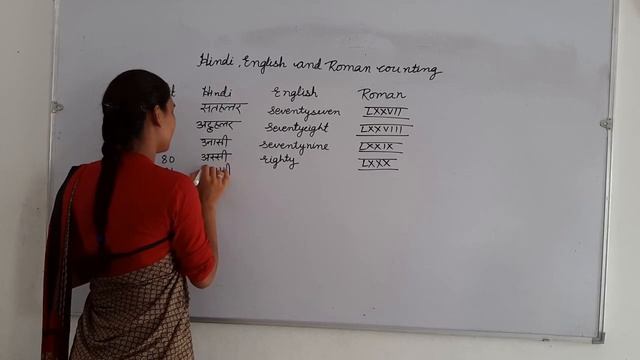 Hindi, English and Roman counting
Hindi English Roman
सतहत्तर seventyseven LXXVII
अट्ठहत्तर seventyeight LXXVIII
उनासी seventynine LXXIX
80 अस्सी eighty LXXX